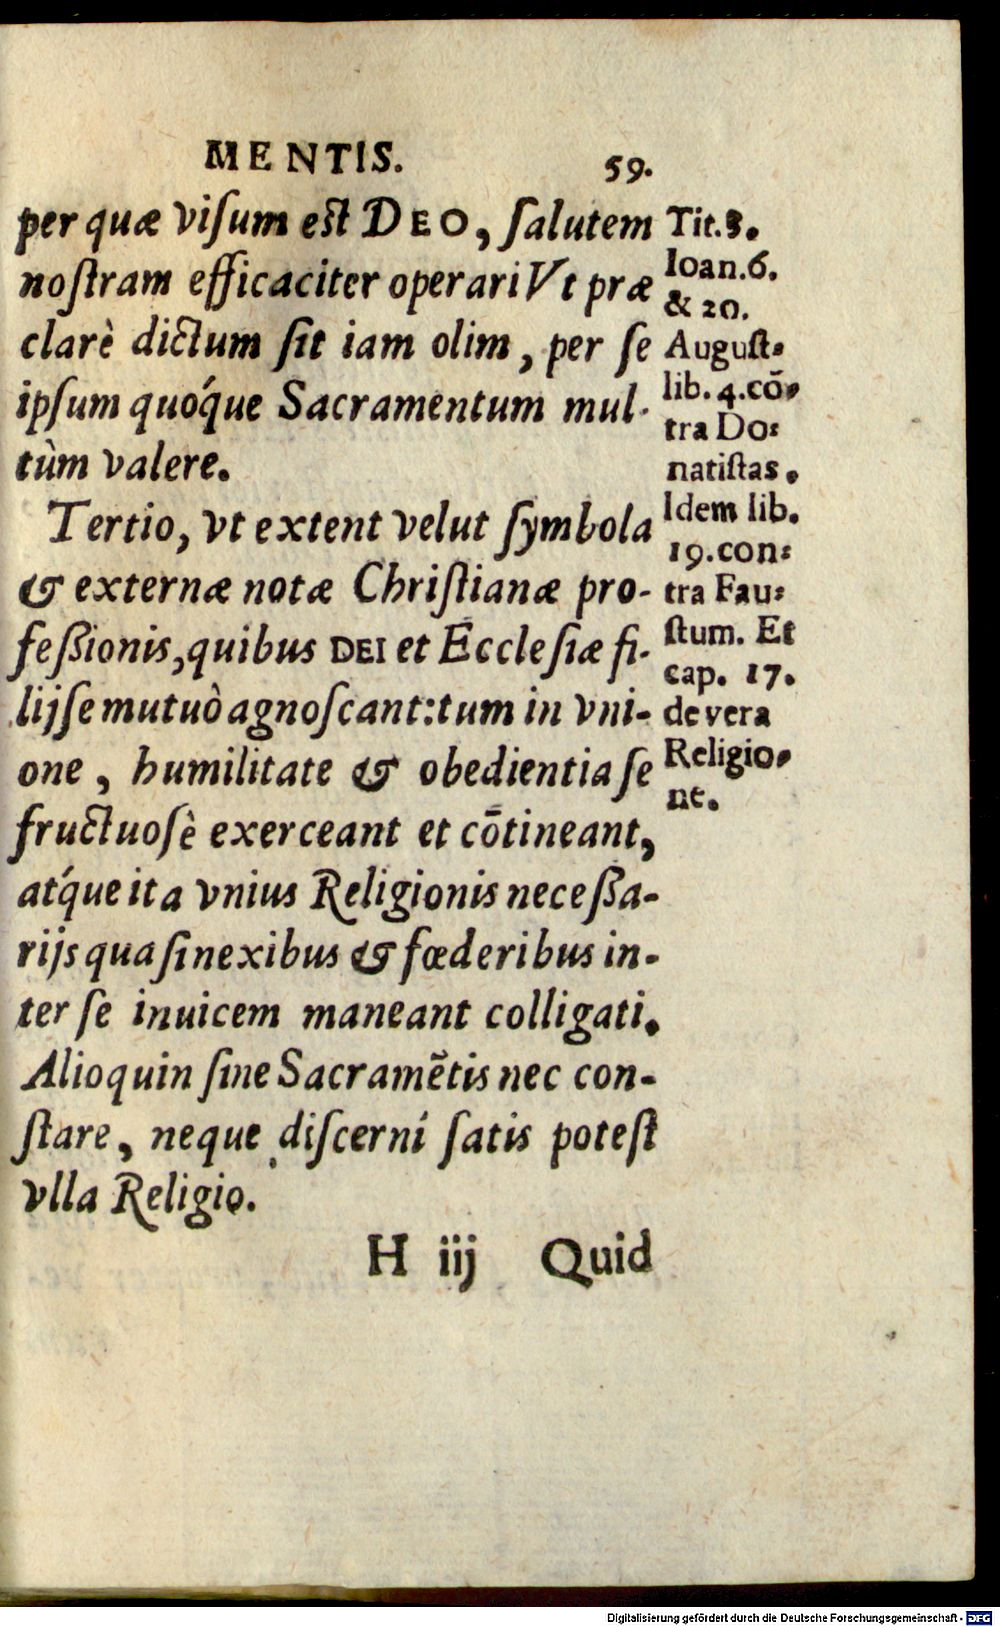 MENTIS. 59.
per quæ viſum eſt DEO, ſalutem
noſtram efficaciter operari Vt præ
clarè dictum ſit iam olim, per ſe
ipſum quóque Sacramentum mul-
tùm valere.
Tertio, vt extent velut ſymbola
& externæ notæ Chriſtianæ pro-
feßionis, quibus DEI et Eccleſiæ fi-
lijſe mutuò agnoſcant: tum in vni-
one, humilitate & obedientia ſe
fructuoſè exerceant et cõtineant,
atq́ue ita vnius Religionis neceßa-
rijs quaſi nexibus & fœderibus in-
ter ſe inuicem maneant colligati.
Alioquin ſine Sacramẽtis nec con-
ſtare, neque diſcerni ſatis poteſt
vlla Religio.
H iij Quid
Tit. 3.
Ioan. 6.
& 20.
Auguſt.
lib. 4. cõ-
tra Do-
natiſtas.
Idem lib.
19. con-
tra Fau-
ſtum. Et
cap. 17.
de vera
Religio-
ne.
Digitalisierung gefördert durch die Deutsche Forschungsgemeinschaft - DFG